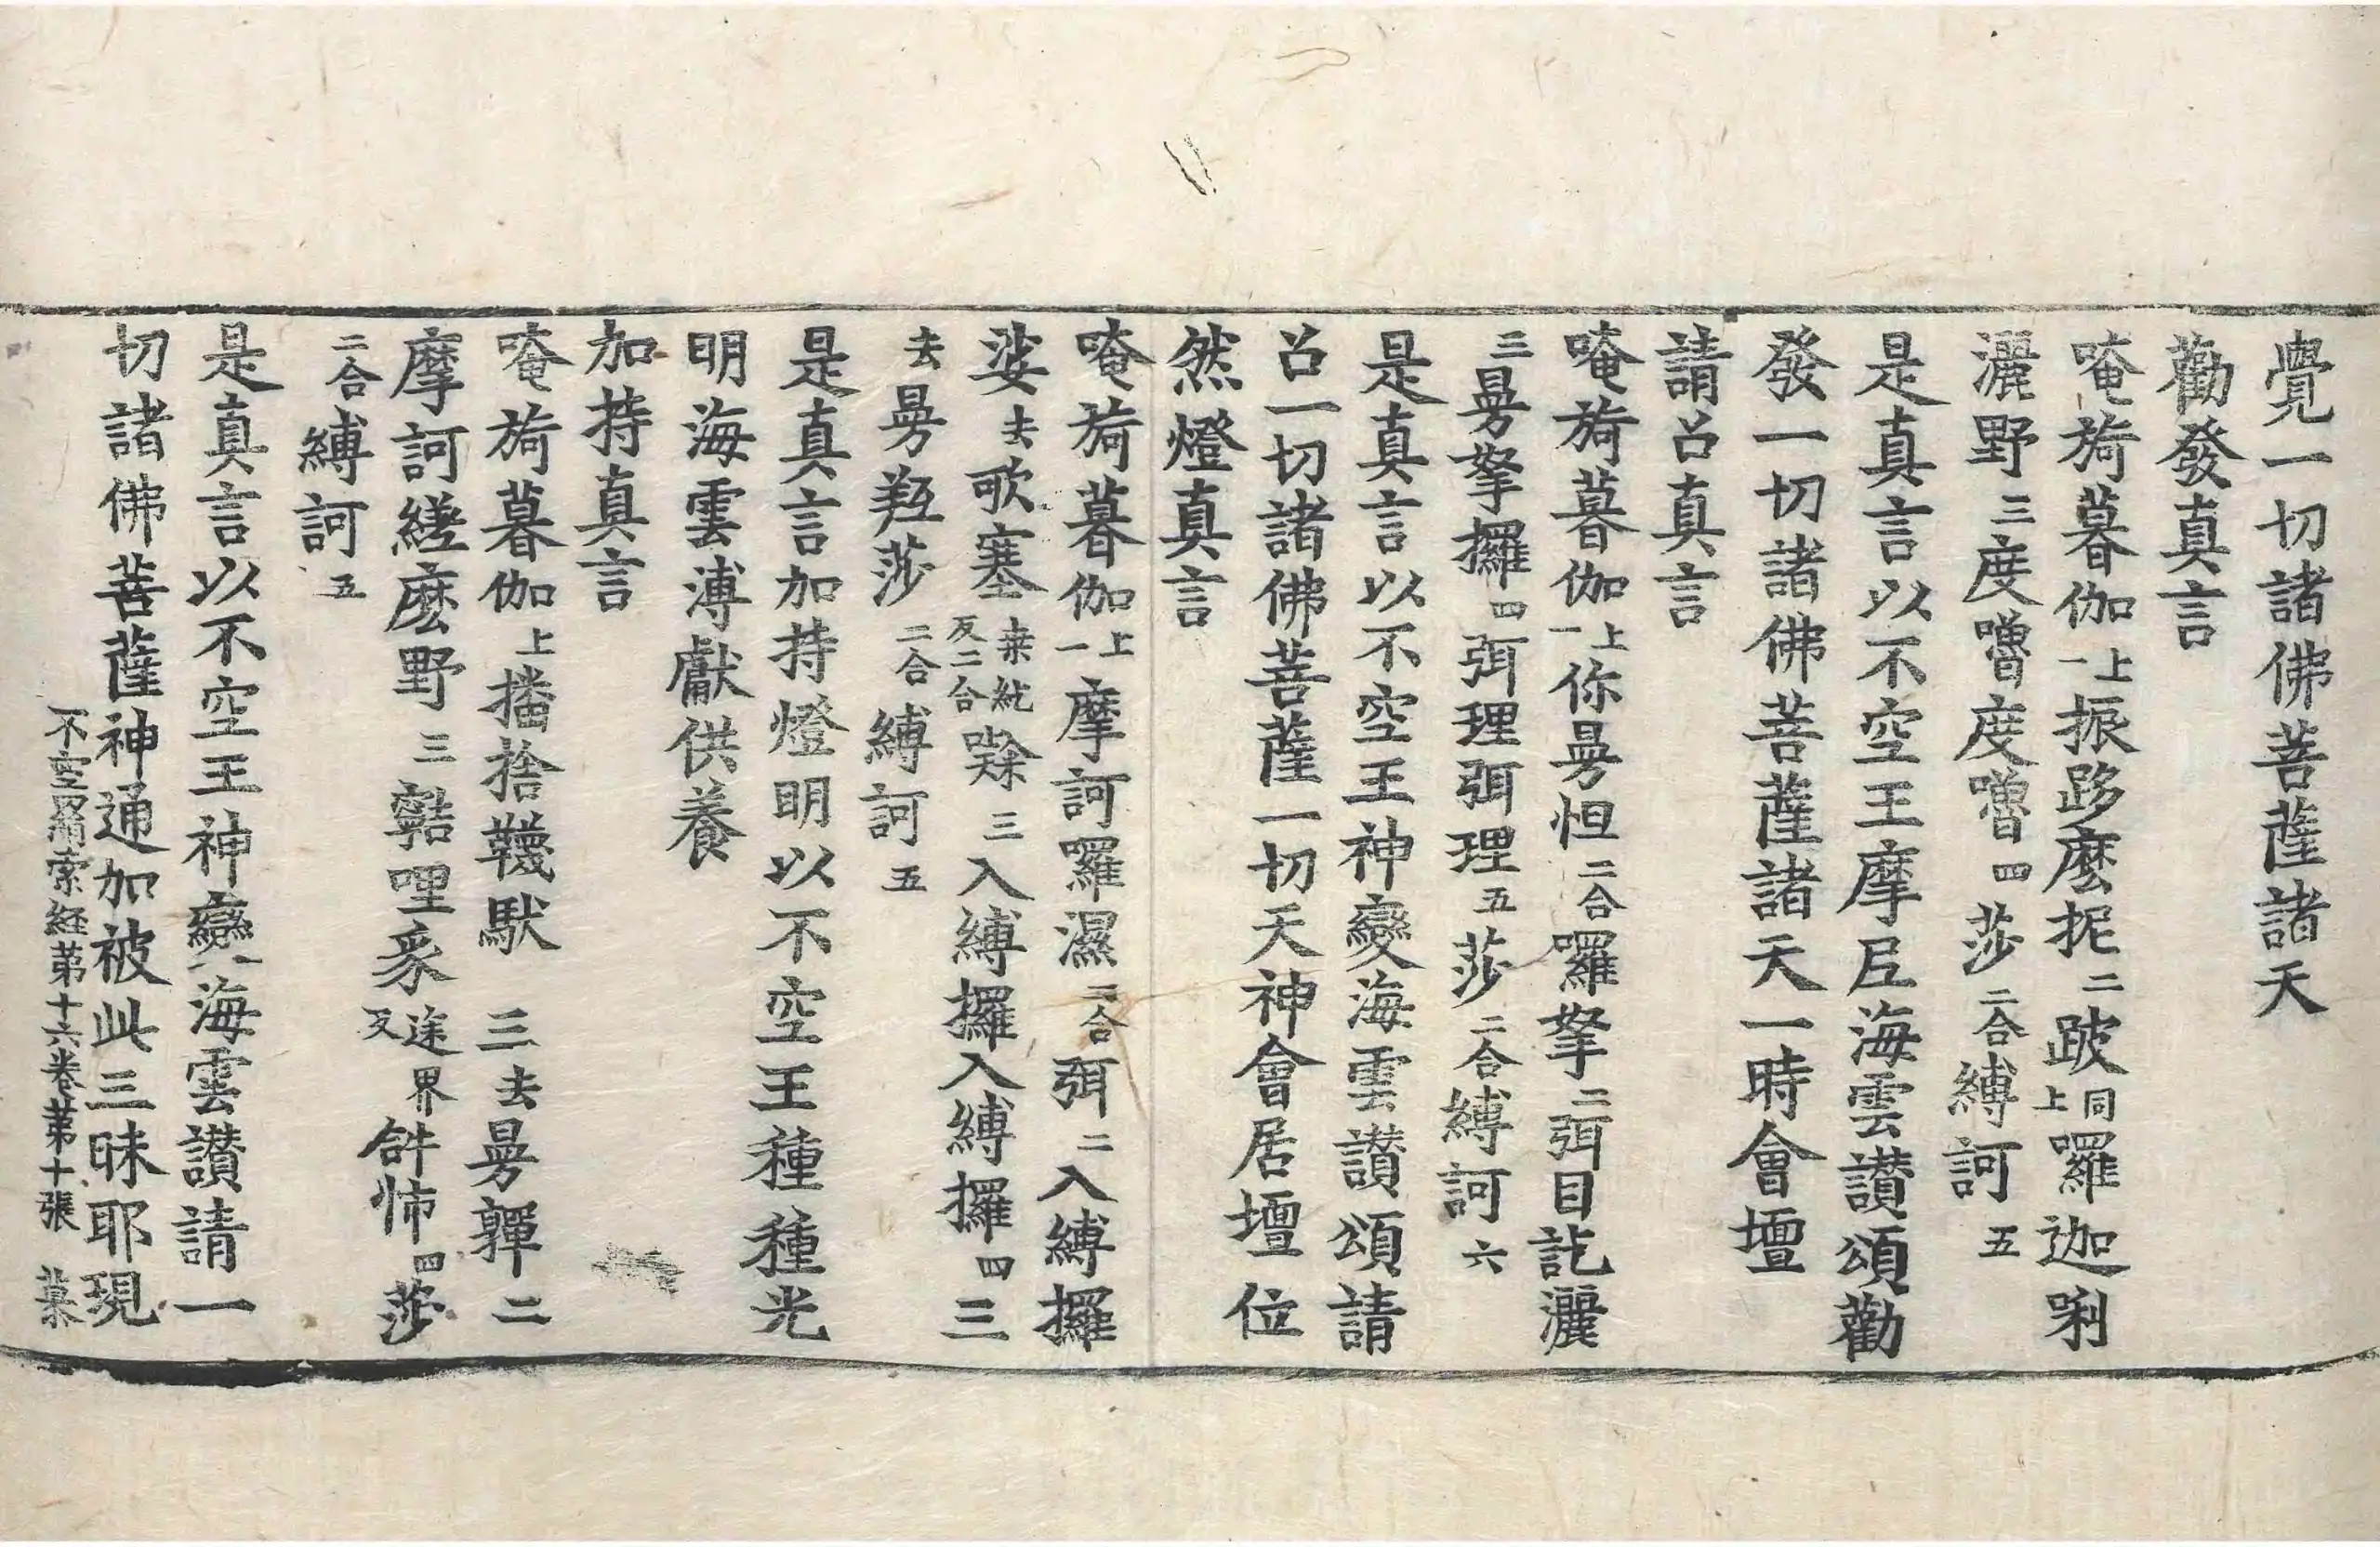 覺一切諸佛菩薩諸天
勸發真言
唵旖暮伽上一振跢麼抳二跛同上囉迦㘑
灑野三度嚕度嚕四莎二合縛訶五
是真言以不空王摩尼海雲讃頌勸
發一切諸佛菩薩諸天一時會壇
請召真言
唵旖暮伽上一你曼怛二合囉拏二弭目訖灑
三曼拏攞四弭理弭理五莎二合縛訶六
是真言以不空王神變海雲讃頌請
召一切諸佛菩薩一切天神會居壇位
然燈真言
唵旖暮伽上一摩訶囉濕二合弭二入縛攞
娑去歌塞桒紇反二合㘑三入縛攞入縛攞四三
去曼羝莎二合縛訶五
是真言加持燈明以不空王種種光
明海雲溥獻供養
加持真言
唵旖暮伽上播捨韈馱三去曼彈二
摩訶縒麼野三䫦哩豖途界反䤈怖四莎
二合縛訶五
是真言以不空王神變海雲讃請一
切諸佛菩薩神通加被此三昧耶現
不空羂索経苐十六卷苐十張